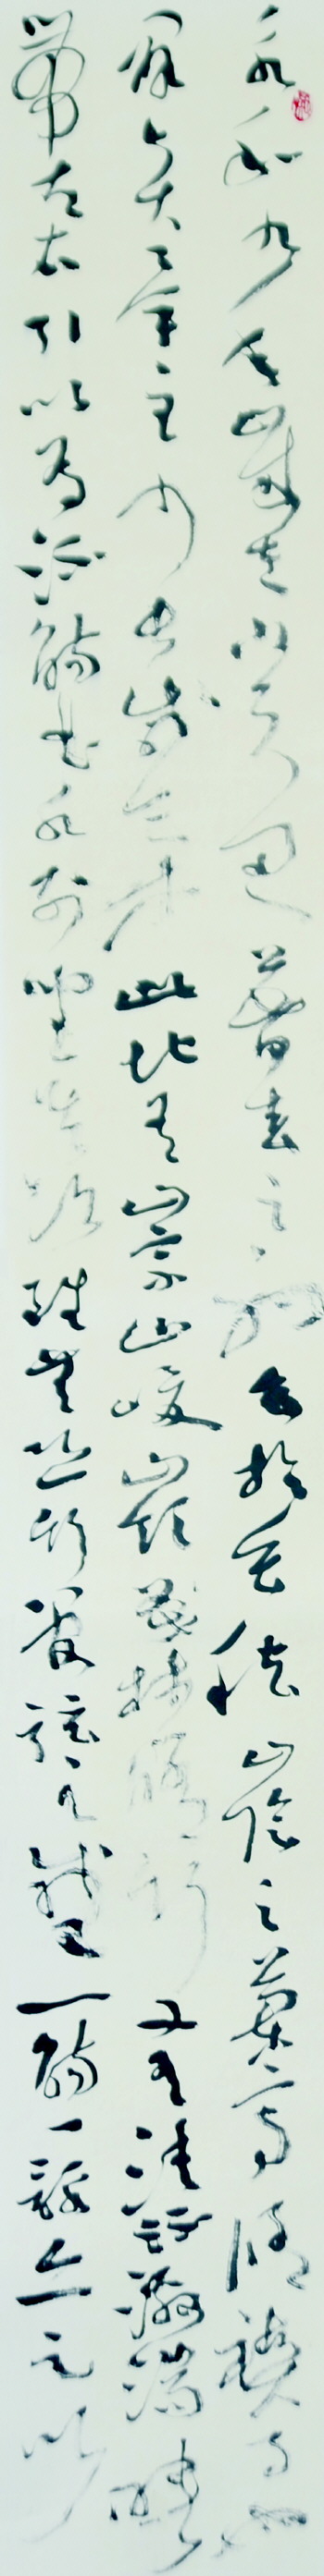 永和九年歲在癸丑暮春之初會於會稽山陰之蘭亭脩禊事也
羣賢畢至少長咸集此地有崇山峻領茂林脩竹又有清流激湍映
帶左右引以為流觴曲水列坐其次雖無絲竹管弦之盛一觴一詠亦足以